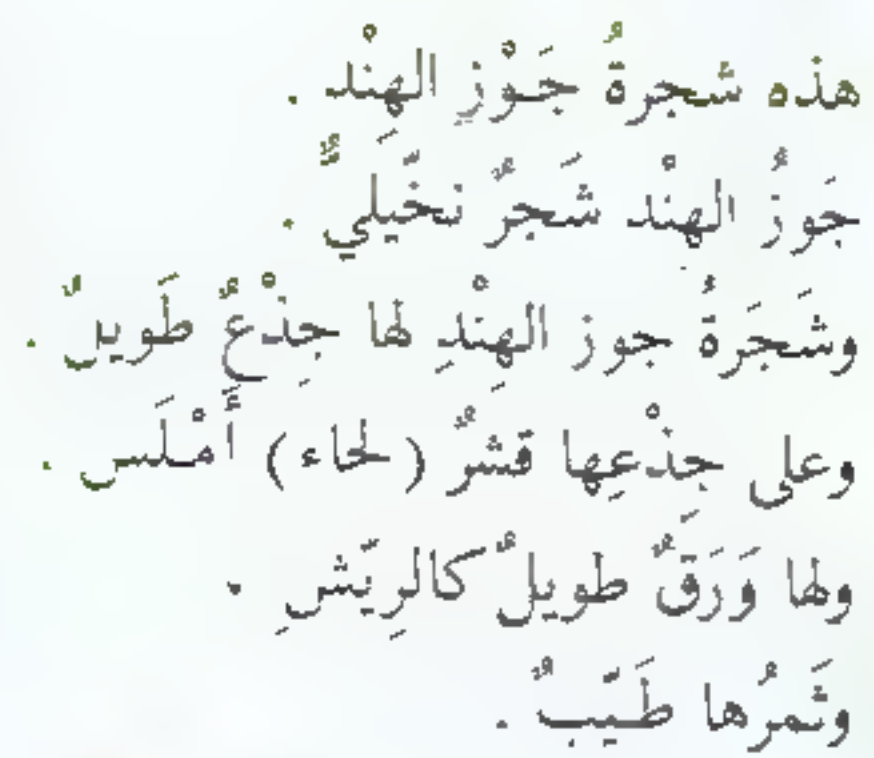 هذه شجرةُ جَوْزِ الهِنْد .
جَوزُ الهِنْد شَجرٌ نخَّيَلِيٌّ .
وشَجَرَةُ جوز الهِنْدِ لها جِذْعٌ طَويلٌ .
وعلى جِذْعِها قشرٌ ( لحاء ) أَمْلَس .
ولها وَرَقٌ طويلٌ كالرِيّشِ .
وثَمرُها طَيّبٌ .